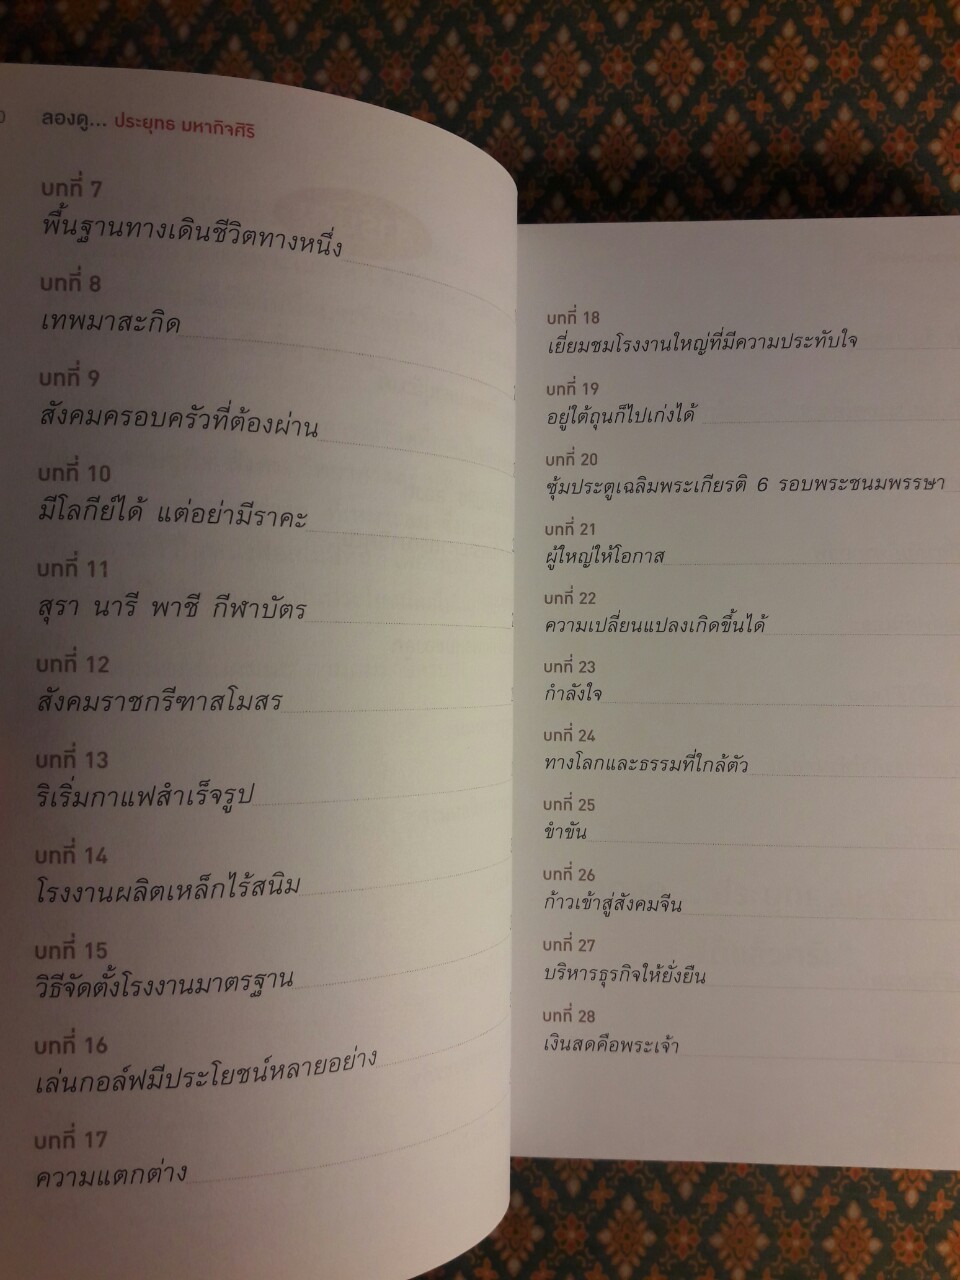 ลองดู... ประยุทธ มหากิจศิริ
บทที่ 7
พื้นฐานทางเดินชีวิตทางหนึ่ง
บทที่ 8
เทพมาสะกิด
บทที่ 9
สังคมครอบครัวที่ต้องผ่าน
บทที่ 10
มีโลกีย์ได้ แต่อย่ามีราคะ
บทที่ 11
สุรา นารี พาชี กีฬาบัตร
บทที่ 12
สังคมราชกรีฑาสโมสร
บทที่ 13
ริเริ่มกาแฟสำเร็จรูป
บทที่ 14
โรงงานผลิตเหล็กไร้สนิม
บทที่ 15
วิธีจัดตั้งโรงงานมาตรฐาน
บทที่ 16
เล่นกอล์ฟมีประโยชน์หลายอย่าง
บทที่ 17
ความแตกต่าง
บทที่ 18
เยี่ยมชมโรงงานใหญ่ที่มีความประทับใจ
บทที่ 19
อยู่ใต้ถุนก็ไปเก่งได้
บทที่ 20
ซุ้มประตูเฉลิมพระเกียรติ 6 รอบพระชนมพรรษา
บทที่ 21
ผู้ใหญ่ให้โอกาส
บทที่ 22
ความเปลี่ยนแปลงเกิดขึ้นได้
บทที่ 23
กำลังใจ
บทที่ 24
ทางโลกและธรรมที่ใกล้ตัว
บทที่ 25
ขำขัน
บทที่ 26
ก้าวเข้าสู่สังคมจีน
บทที่ 27
บริหารธุรกิจให้ยั่งยืน
บทที่ 28
เงินสดคือพระเจ้า